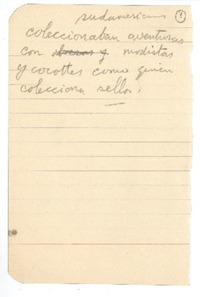 sudamericanos
coleccionaban aventuras
con y modistas
y cocottes como quien
colecciona sellos.